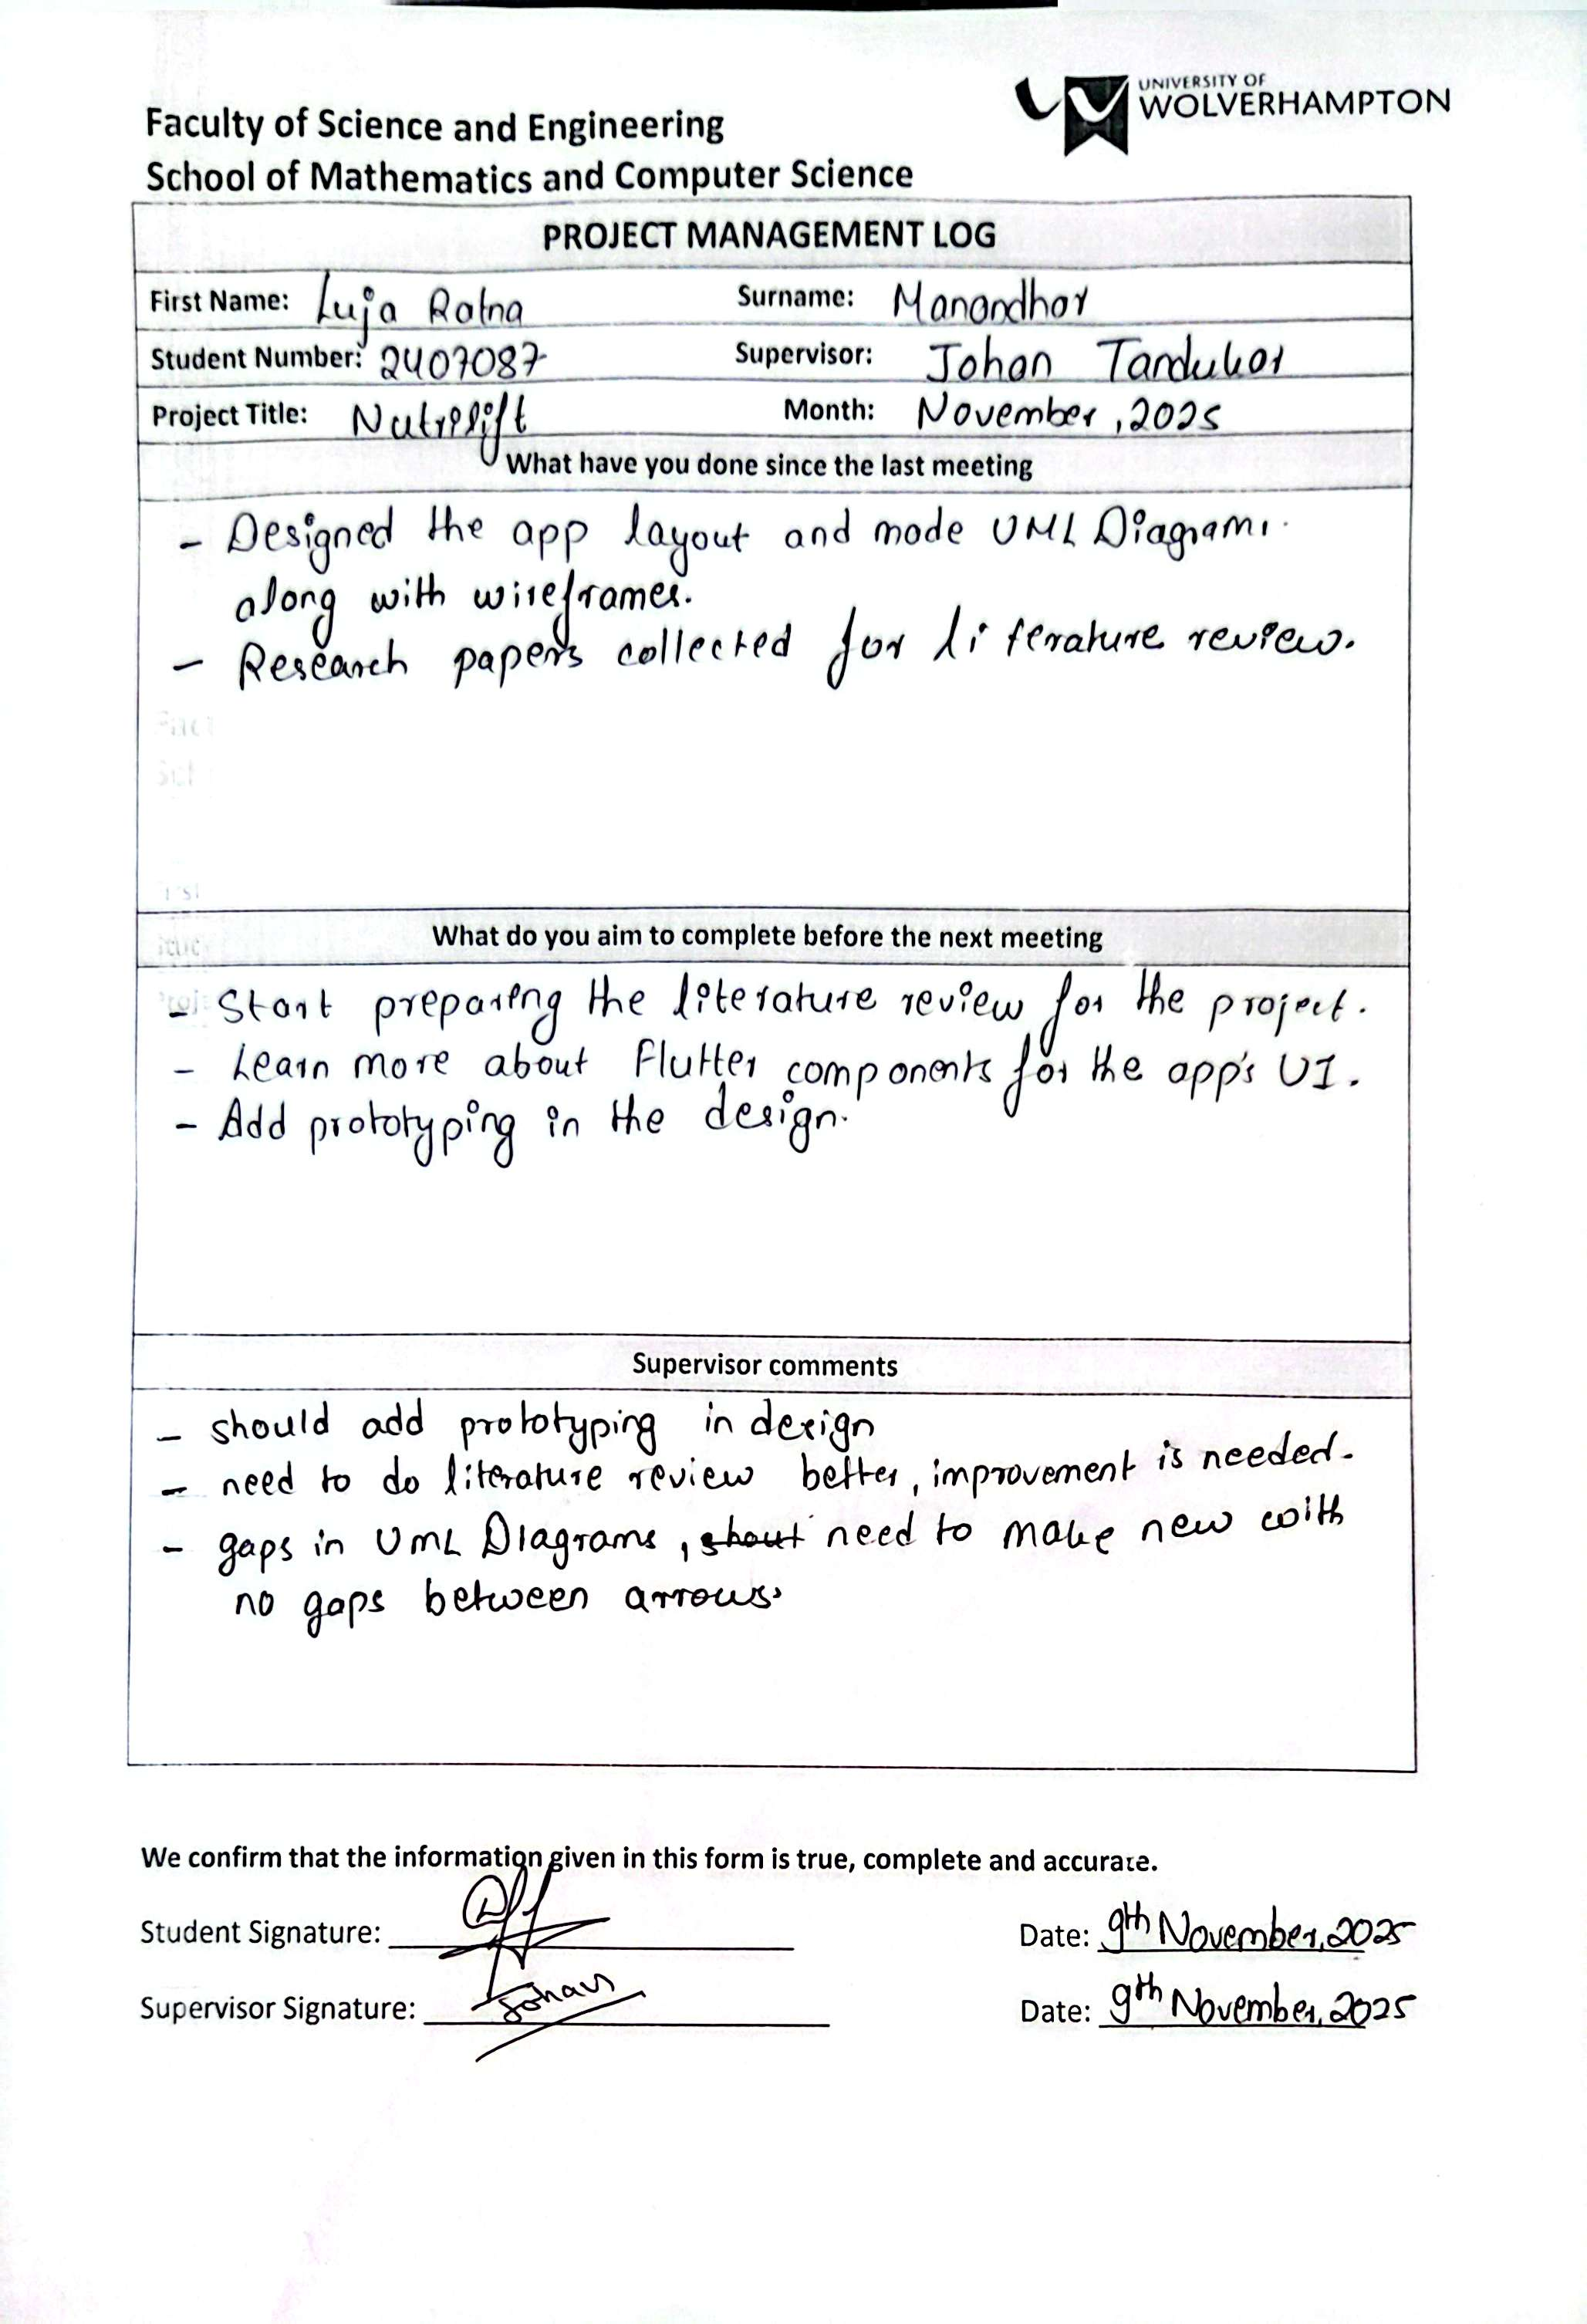 UNIVERSITY OF
WOLVERHAMPTON
Faculty of Science and Engineering
School of Mathematics and Computer Science
PROJECT MANAGEMENT LOG
First Name: Luja Ratna Surname: Manandhar
Student Number: 2407087 Supervisor: Johan Tandukar
Project Title: Nutrilift Month: November, 2025
What have you done since the last meeting
- Designed the app layout and made UML Diagrams
along with wireframes.
- Research papers collected for literature review.
What do you aim to complete before the next meeting
- Start preparing the literature review for the project.
- Learn more about Flutter components for the app's UI.
- Add prototyping in the design.
Supervisor comments
- should add prototyping in design
- need to do literature review better, improvement is needed.
- gaps in UML Diagrams, need to make new with
no gaps between arrows.
We confirm that the information given in this form is true, complete and accurate.
Student Signature: Date: 9th November, 2025
Supervisor Signature: Johan Date: 9th November, 2025